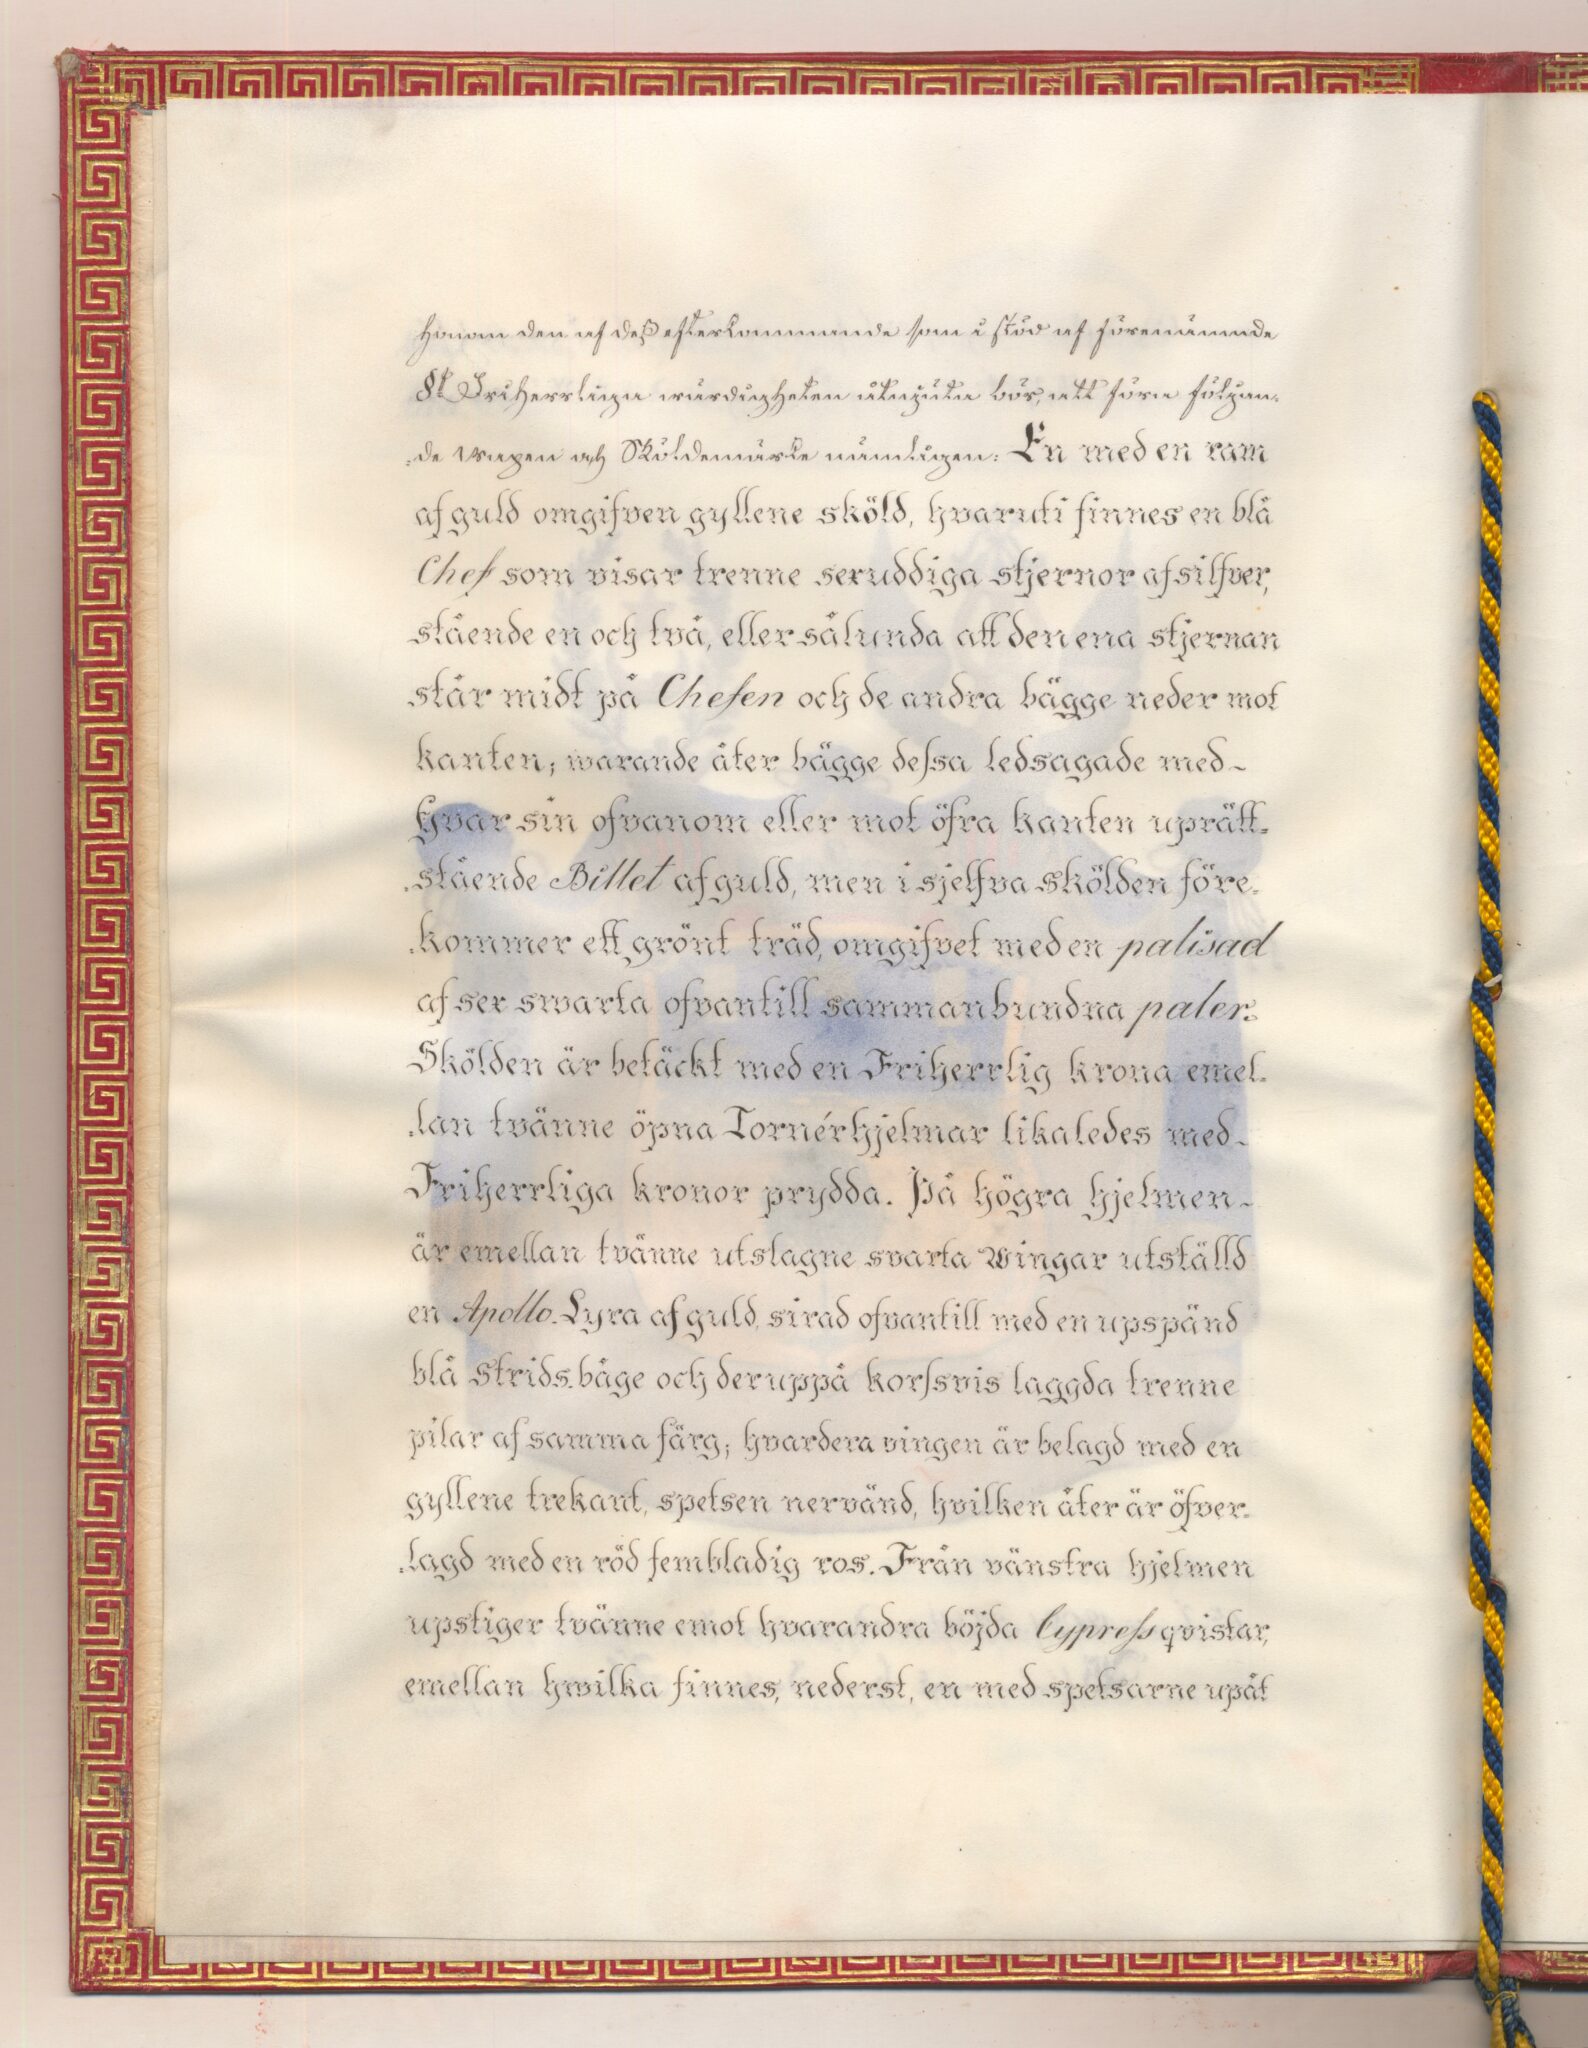 honom den af deß efterkommande som i stöd af förenämnde
§ Friherrliga wärdigheten åtnjuta bör, att föra följan-
-de wapen och Sköldemärke nämligen: En med en ram
af guld omgifven gyllene sköld, hvaruti finnes en blå
Chef som visar trenne sexuddiga stjernor af silfver,
stående en och två, eller sålunda att den ena stjernan
står midt på Chefen och de andra bägge neder mot
kanten; warande åter bägge deſsa ledsagade med-
hvar sin ofvanom eller mot öfra kanten uprätt-
-stående Billet af guld, men i sjelfva skölden före-
-kommer ett grönt träd, omgifvet med en palisad
af sex swarta ofvantill sammanbundna paler.
Skölden är betäckt med en Friherrlig krona emel-
-lan tvänne öpna Tornérhjelmar likaledes med-
Friherrliga kronor prydda. På högra hjelmen-
är emellan tvänne utslagne svarta wingar utställd
en Apollo-Lyra af guld, sirad ofvantill med en upspänd
blå strids-båge och deruppå korſsvis laggda trenne
pilar af samma färg; hvardera vingen är belagd med en
gyllene trekant, spetsen nervänd, hvilken åter är öfver-
-lagd med en röd fembladig ros. Från vänstra hjelmen
upstiger tvänne emot hvarandra böjda Cypreſsqvistar,
emellan hwilka finnes, nederst, en med spetsarne upåt